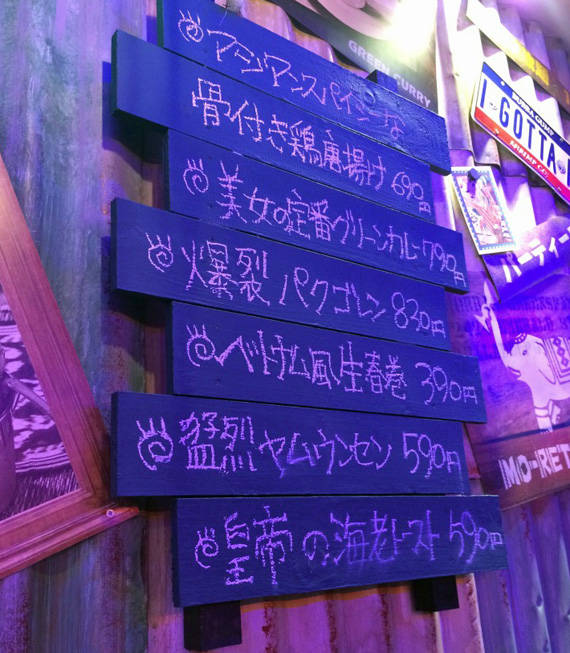 アジアンスパイシーな
骨付き鶏唐揚け 690円
美女の定番グリーンカレー790円
爆裂 パクゴレン 830円
ベトナム風生春巻 390円
猛烈 ヤムウンセン 590円
皇帝の海老トースト 590円
GREEN CURRY
I GOTTA
SHRIMP CO.
パーティー
MO-RET